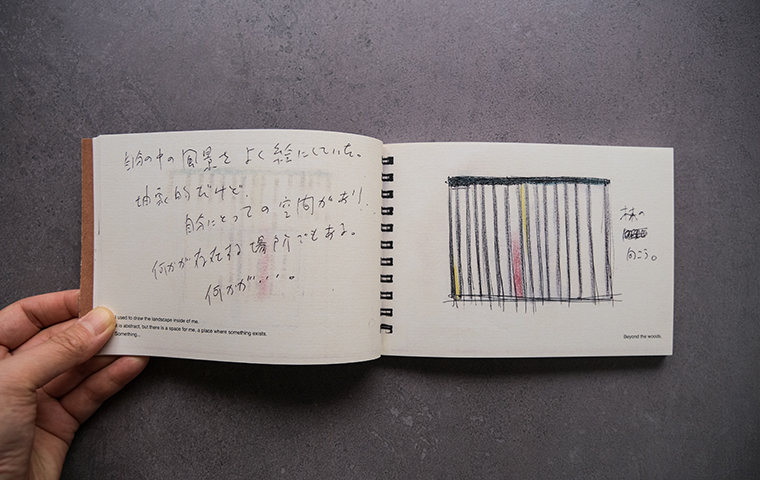 自分の中の風景をよく絵にしていた。
抽象的だけど、
自分にとっての空間があり、
何かが存在する場所でもある。
何かが‥‥。
I used to draw the landscape inside of me.
It is abstract, but there is a space for me, a place where something exists.
Something...
林の
向こう。
Beyond the woods.